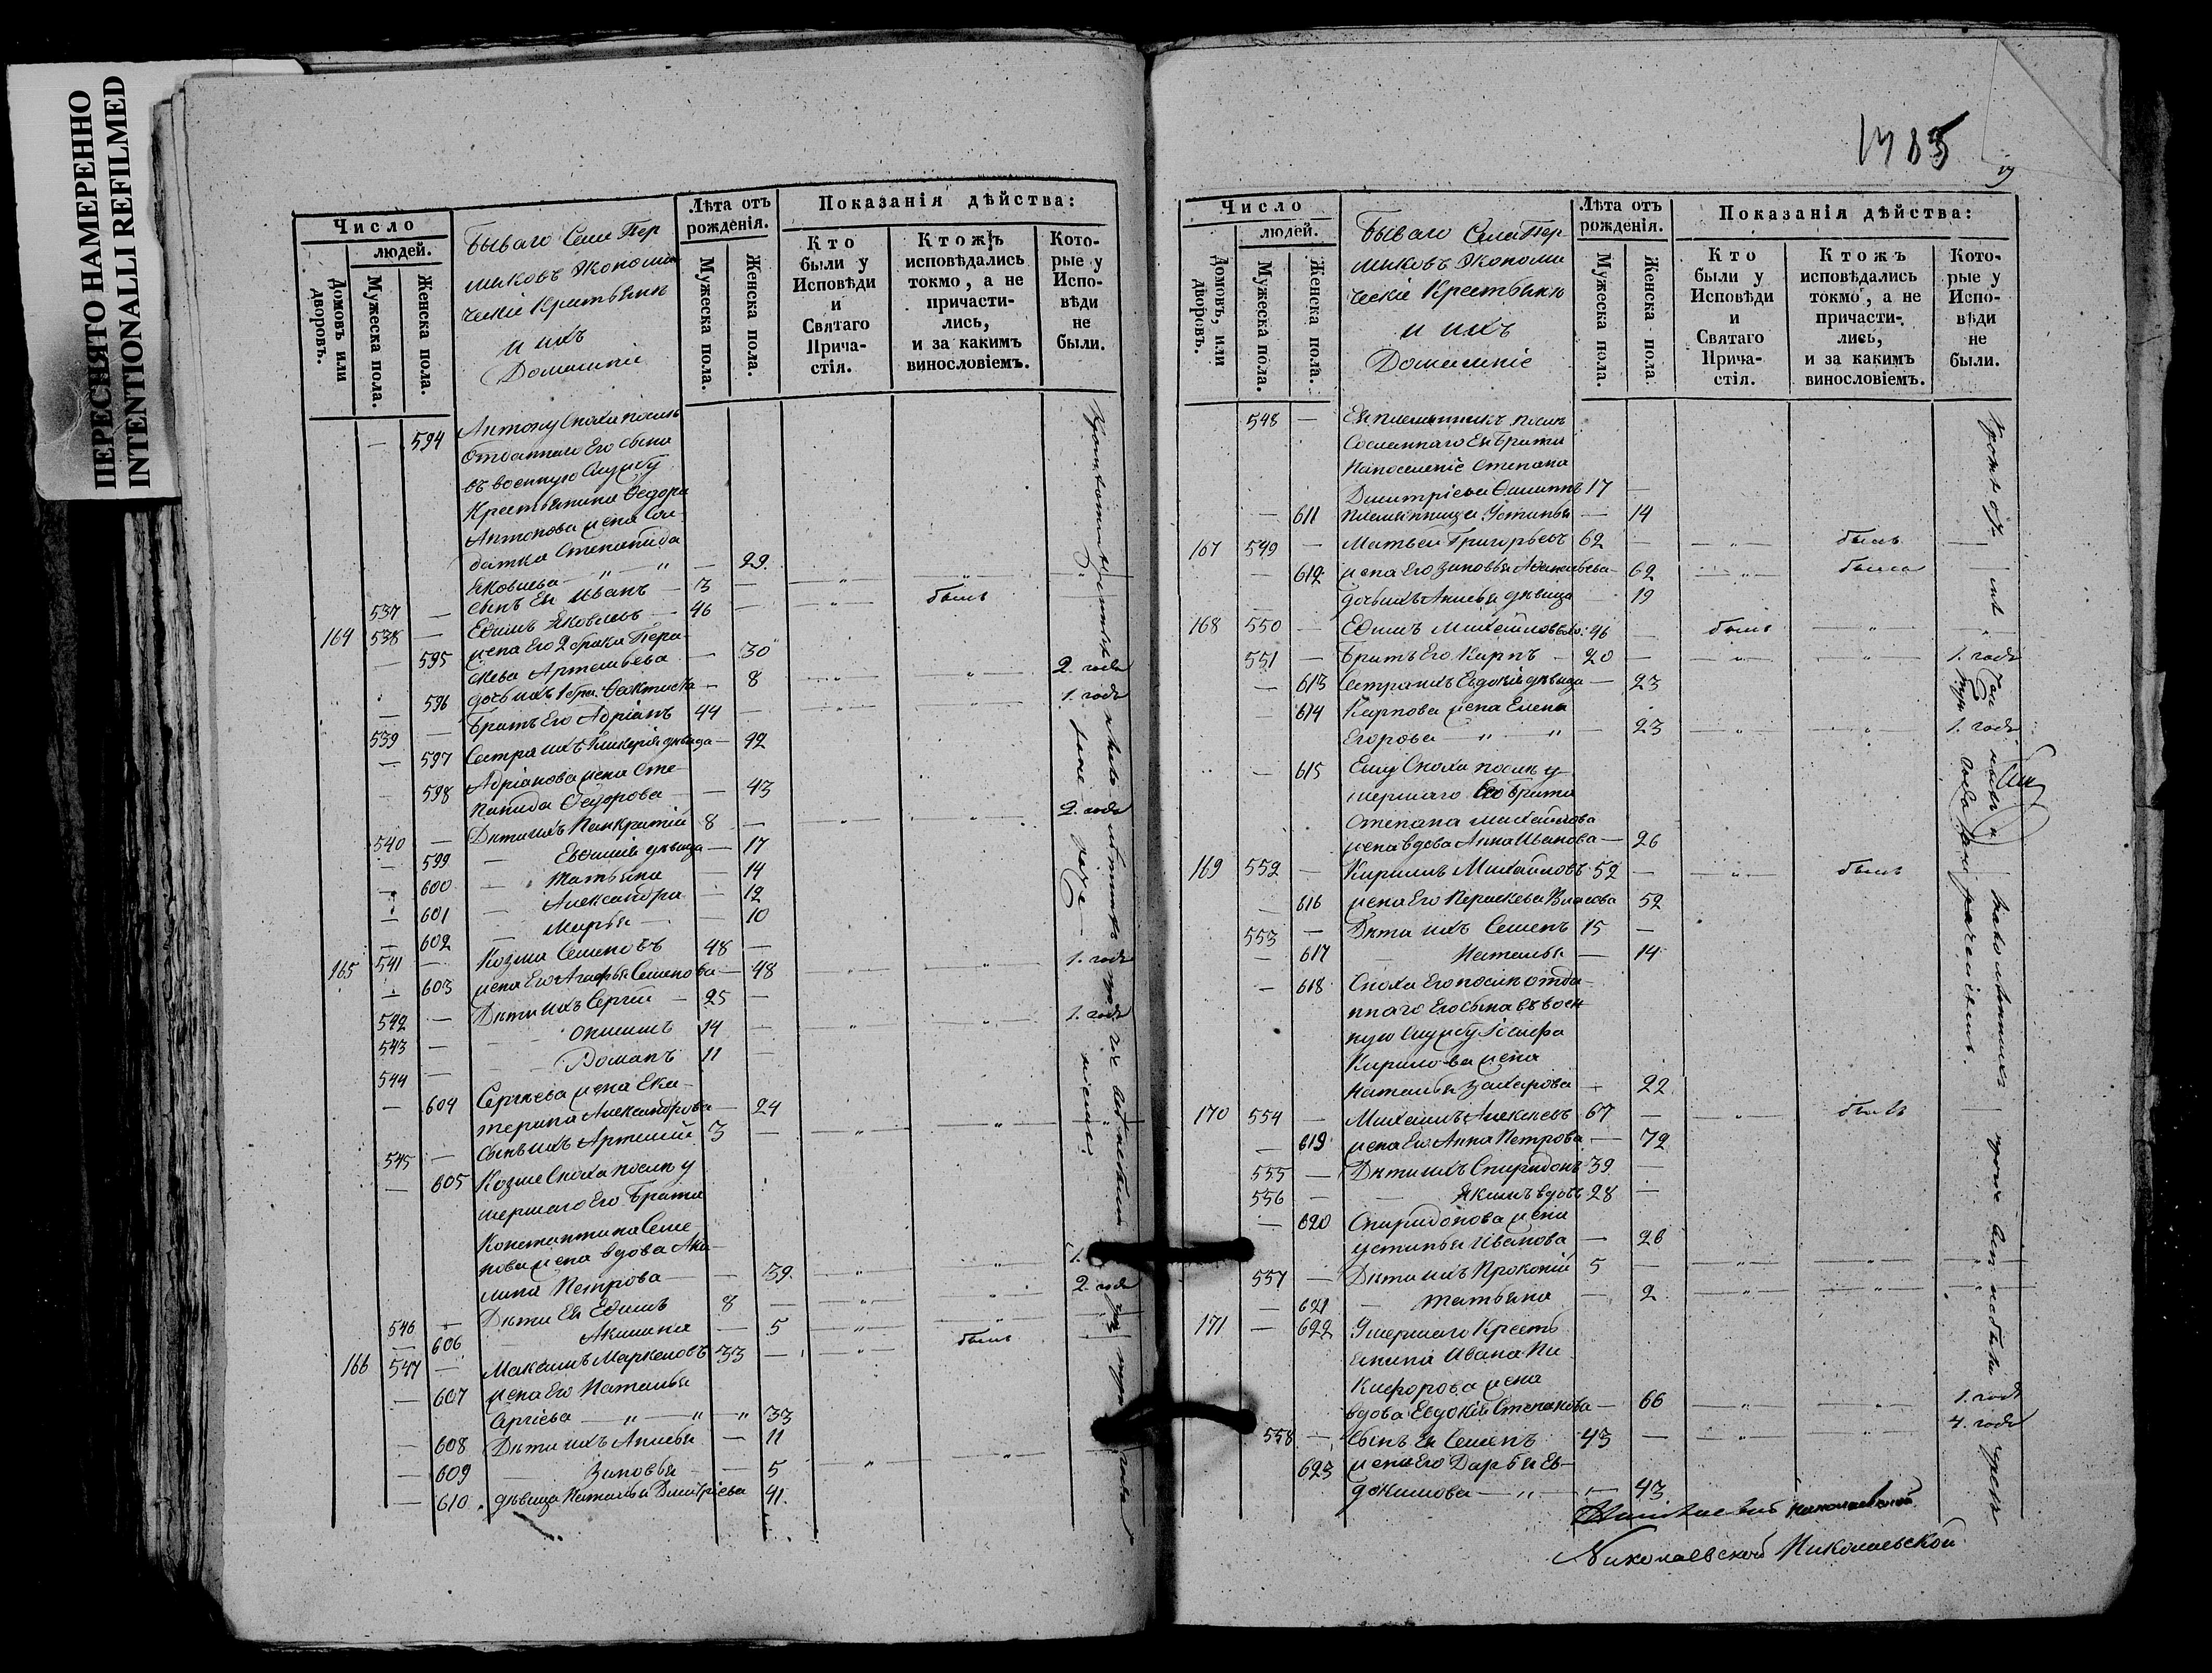 ПЕРЕСНЯТО НАМЕРЕННО
INTENTIONALLI REFILMED
Число
людей.
Домовъ или дворовъ.
Мужеска пола.
Женска пола.
Бываго Села Пер
миковъ Экономи
ческіе Крестьяне
и ихъ
Домашніе
Лѣта отъ рожденія.
Мужеска пола.
Женска пола.
Показанія дѣйства:
Кто были у Исповѣди и Святаго Прича-стія.
Ктожъ исповѣдались токмо, а не причасти-лись, и за какимъ винословіемъ.
Кото-рые у Испо-вѣди не были.
— 594 Антону Сноха после
Отданнаго Его сына
въ военную Службу
Крестьянина Ѳедора
Антонова жена Сол-
датка Степанида
Яковлева — 29
537 — сынъ Ея Иванъ — 3 —
164 538 — Ефимъ Яковлевъ — 46 — былъ
— 595 жена Его 2 брака Пера-
скева Артемьева — 30 2. года
— 596 дочь ихъ 1 бра. Ѳеоктиста — 8 1. годъ
539 — Братъ Его Адріанъ 44 —
— 597 Сестра ихъ Гликерія дѣвица — 42
— 598 Адріанова жена Сте-
панида Ѳедорова — 43 2. года
540 — Дѣти ихъ Панкратій 8 —
— 599 — Евфимія дѣвица — 17
— 600 — Татьяна — 14
— 601 — Александра — 12
— 602 — Марья — 10
165 541 — Козма Семеновъ 48 —
— 603 жена Его Агафья Семенова — 48 1. годъ
542 — Дѣти ихъ Сергій — 25 —
543 — — Онисимъ 14 — 1. годъ
544 — — Романъ 11 —
— 604 Сергѣева жена Ека-
терина Александрова — 24
545 — Сынъ ихъ Артемій 3 —
— 605 Козме Сноха после у
мершаго Его Брата
Константина Семе
нова жена вдова Аку-
лина Петрова — 39. 1.
546 — Дѣти Ея Ефимъ 8 — 2. года
— 606 Акилина — 5
166 547 — Максимъ Маркеловъ 33 — былъ
— 607 жена Его Наталья
Сергіева — 33
— 608 Дѣти ихъ Анисья — 11
— 609 — Зиновья — 5
— 610. дѣвица Наталья Дмитріева 41.
1785
Число
людей.
Домовъ, или дворовъ.
Мужеска пола.
Женска пола.
Бываго Села Пер
миковъ Экономи
ческіе Крестьяне
и ихъ
Домашніе
Лѣта отъ рожденія.
Мужеска пола.
Женска пола
Показанія дѣйства:
Кто были у Исповѣди и Святаго Прича-стія.
Ктожъ исповѣдались токмо, а не причасти-лись, и за какимъ винословіемъ.
Кото-рые у Испо-вѣди не были.
548 — Ея племянникъ после
Сосланнаго Ея Брата
На поселеніе Степана
Дмитріева Филиппъ 17 —
— 611 племянница Устинья — 14
167 549 — Матвей Григорьевъ 62 — былъ
— 612 жена Его Зиновья — 62 была
дочь ихъ Анисья дѣвица 19
168 550 — Ефимъ Михайловъ 46 — былъ
551 — Братъ Его Карпъ — 20 — 1. годъ
— 613 Сестра ихъ Евдокія дѣвица — 23
— 614 Карпова жена Елена
Егорова — 23 1. годъ
— 615 Ему Сноха после у-
мершаго Его Брата
Степана Михайлова
жена вдова Анна Иванова — 26
169 552 — Кирилъ Михайловъ 52 — былъ
— 616 жена Его Пераскева Власова 52
553 — Дѣти ихъ Семенъ 15 —
— 617 — Наталья — 14
— 618 Сноха Его после отда-
ннаго Его Сына въ воен
ную Службу Іосифа
Кирилова жена
Наталья Захарова — 22
170 554 — Михаилъ Алексѣевъ 67 — былъ
— 619 жена Его Анна Петрова — 72
555 — Дѣти ихъ Спиридонъ 39 —
556 — — Якимъ вдовъ 28 —
— 620 Спиридонова жена
Устинья Иванова — 26
557 — Дѣти ихъ Прокопій 5 —
— 621 — Татьяна — 2
171 — 622 Умершаго Кресть
янина Ивана Ни
кифорова жена
вдова Евдокія Степанова — 66 1. годъ
558 — Сынъ Ея Семенъ 43 — 4. года
623 жена Его Дарья Ев-
докимова — 43
Николаевской Николаевской